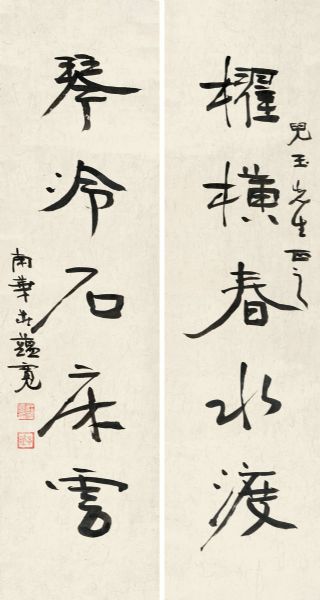 兒玉先生正之
櫂横春水渡
琴冷石床雲
南華莊蘊寬